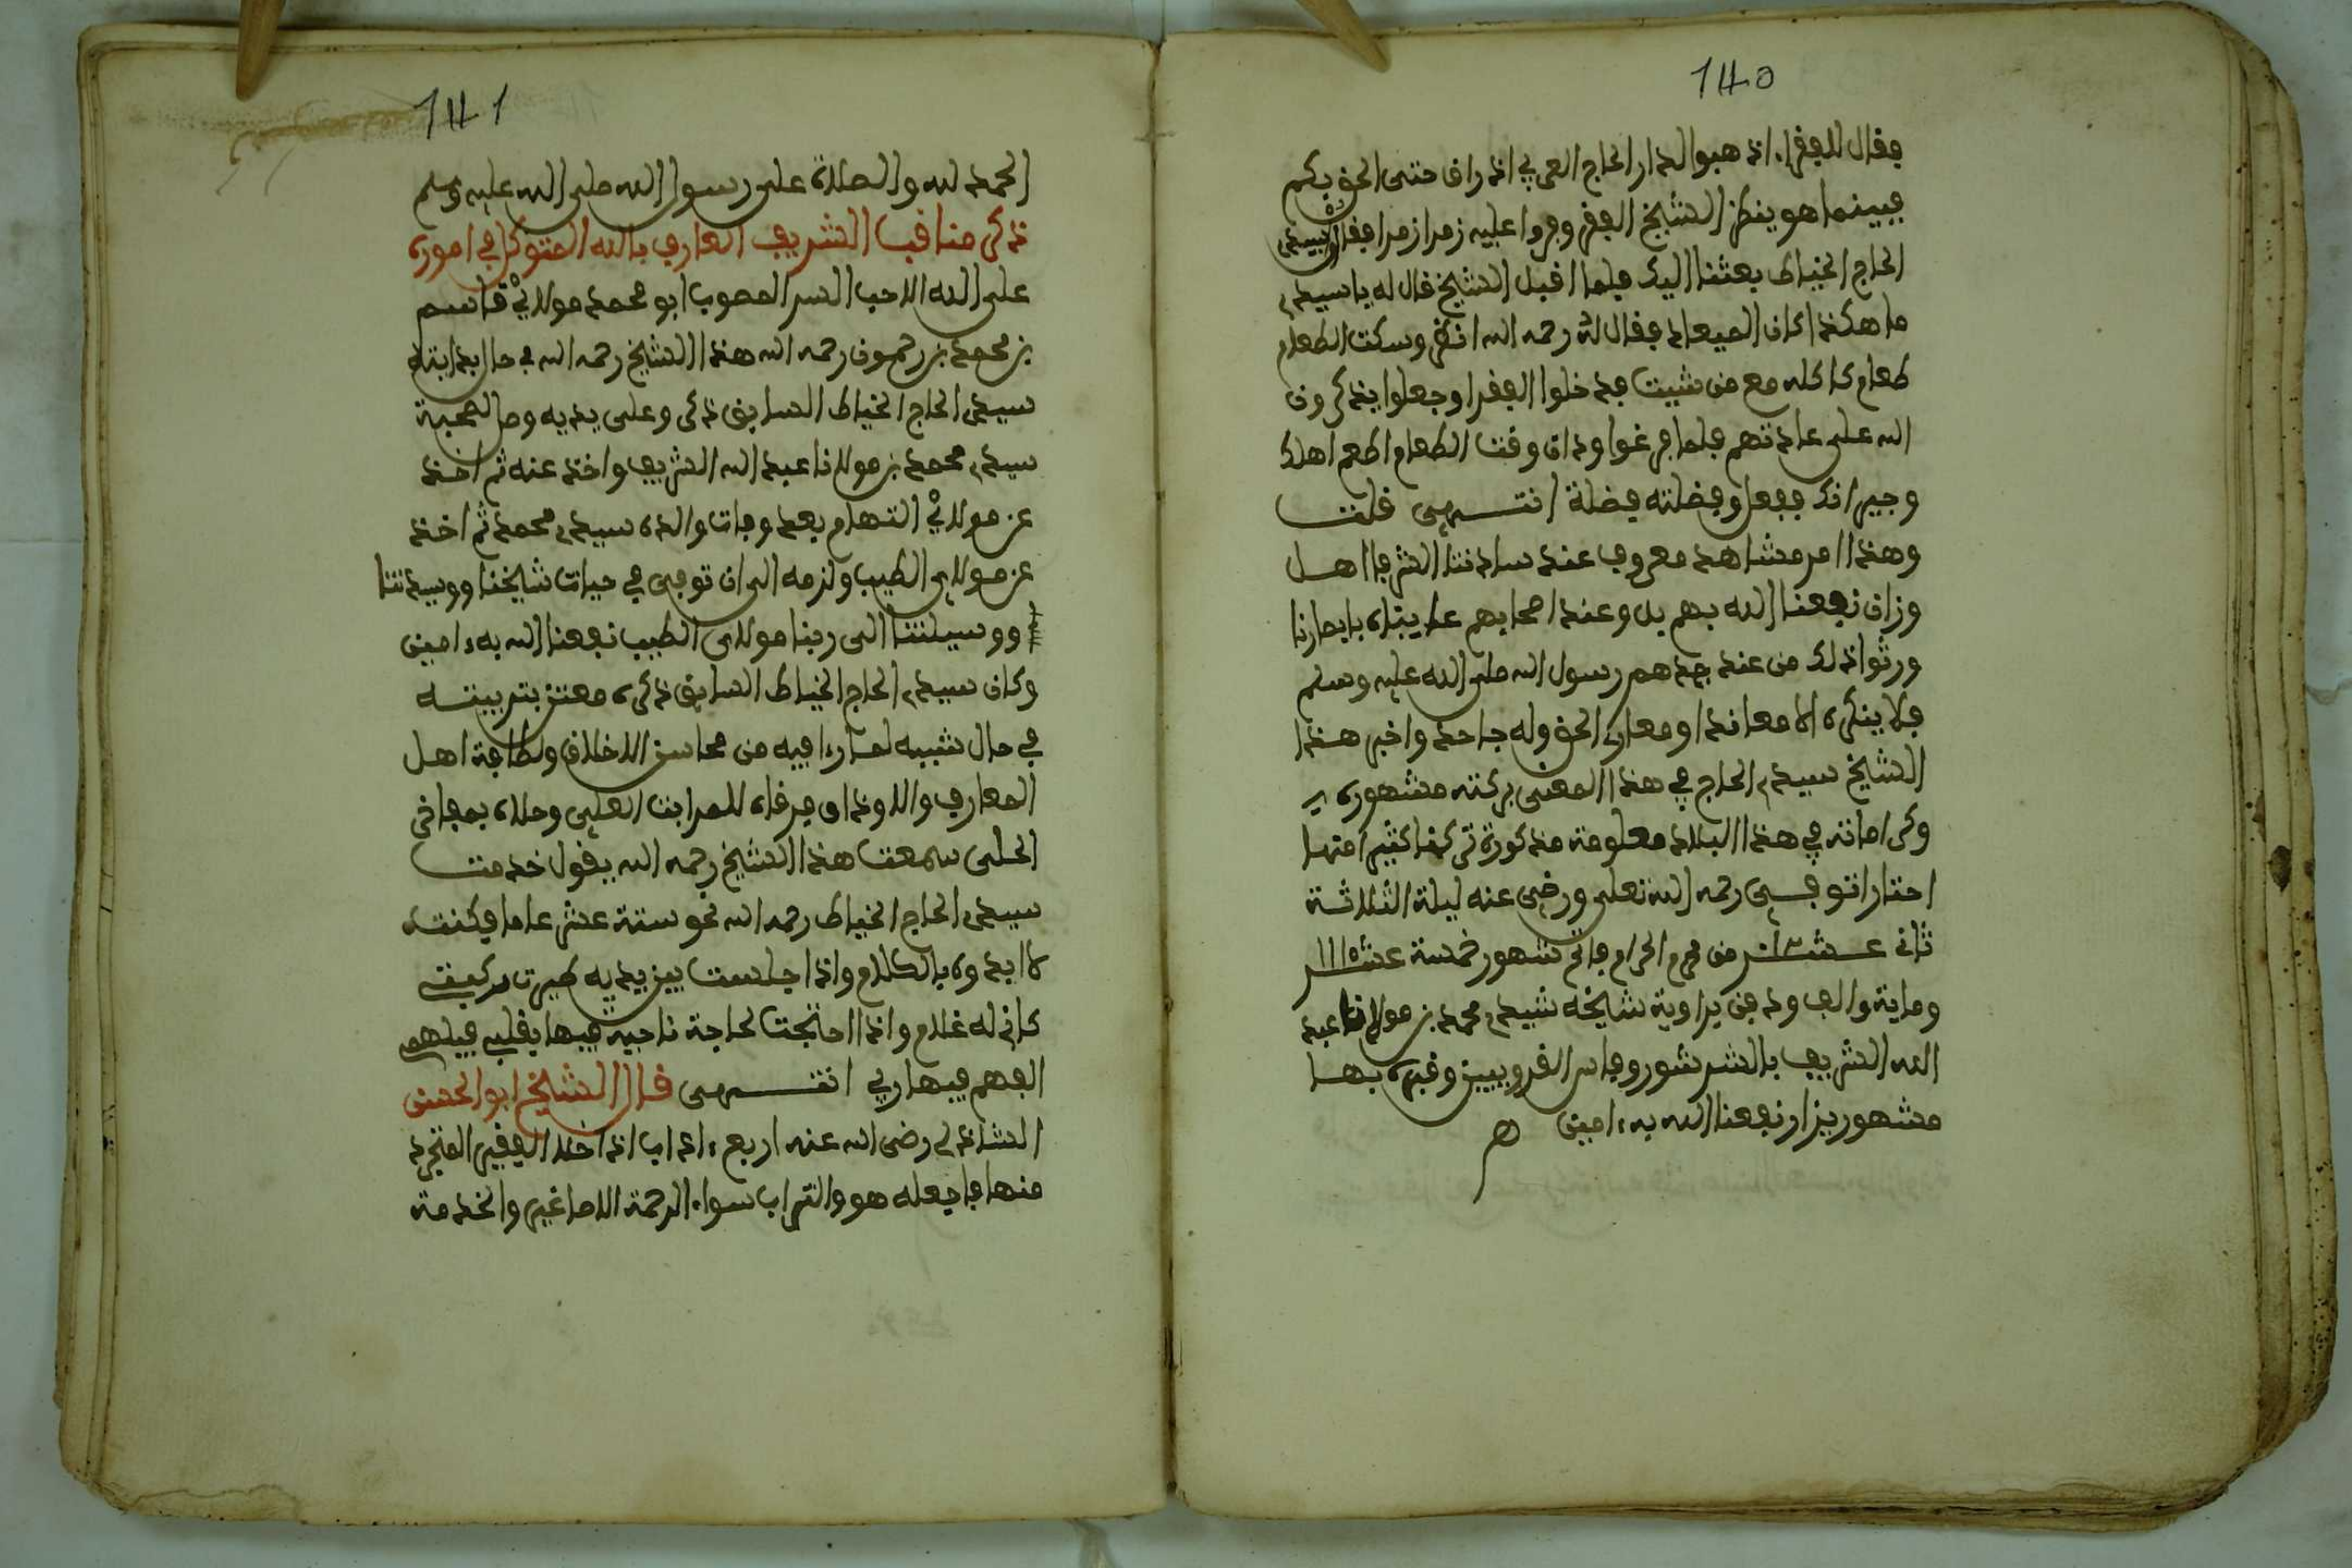 140
فقال للفقراء اذهبوا لدار الحاج العربي اذ راف حتى الحق بكم
فبينما هو ينظر الشيخ الفقر وفروا عليه زمرا زمرا فقال سيدي
الحاج الخياط بعثنا اليك فلما اقبل الشيخ قال له يا سيدي
ما هكذا كان الميعاد فقال له رحمه الله انظر وسكت الطعام
طعامك اكله مع من شيت فدخلوا الفقرا وجعلوا يذكرون
الله على عادتهم فلما فرغوا وذان وقت الطعام اطعم اهلك
وجيرانك ففعل وفضلته فضلة انتهى قلت
وهذا امر مشاهد معروف عند ساداتنا الشرفا اهل
وزان نفعنا الله بهم بل وعند اصحابهم عايناه بابصارنا
ورثوا ذلك من عند جدهم رسول الله صلى الله عليه وسلم
فلا ينكره الا معاندا ومعارك الحق وله جاحد واخبر هذا
الشيخ سيدي الحاج في هذا المعنى بركته مشهوره
وكراماته في هذا البلاد معلومة مذكورة تركنا كثيرا منها
اختارا توفي رحمه الله تعلى ورضي عنه ليلة الثلاثة
ثاني عشر من محرم الحرام فاتح شهور خمسة عشر ١١١٥
وماية والف ودفن بزاوية شيخه سيدي محمد بن مولانا عبد
الله الشريف بالشرشور وفاس القرويين وقبره بها
مشهور يزار نفعنا الله به ءامين ه
141
الحمد لله والصلاة على رسول الله صلى الله عليه وسلم
ذكر مناقب الشريف العارف بالله المتوكل في اموره
على الله الاحب السر المصوب ابو محمد مولاي قاسم
بن محمد بن رحمون رحمه الله هذا الشيخ رحمه الله في حال بدايته
سيدي الحاج الخياط السابق ذكره وعلى يديه وصل لصحبة
سيدي محمد بن مولانا عبد الله الشريف واخذ عنه ثم اخذ
عن مولاي التهامي بعد وفات والده سيدي محمد ثم اخذ
عن مولاي الطيب ولزمه الى ان توفي في حيات شيخنا ووسيلتنا
ووسيلتنا الى ربنا مولاي الطيب نفعنا الله به ءامين
وكان سيدي الحاج الخياط السابق ذكره معتن بتربيته
في حال شببه لما رءا فيه من محاسن الاخلاق ولطافة اهل
المعارف والاوذاق فرقاه للمراتب العلى وحلاه بمفاخر
الحلى سمعت هذا الشيخ رحمه الله يقول خدمت
سيدي الحاج الخياط رحمه الله نحو ستة عشر عاما فكنت
لا ابدوه بالكلام واذا جلست بين يديه صيرت ركيفت
كاني له غلام واذا احتجت لحاجة ناجيه فيها بقلبي فيلهم
الفهم فيها ربي انتهى قال الشيخ ابو الحسن
الشاذلي رضي الله عنه اربع ءاداب اذا خلا الفقير المتجرد
منها فاجعله هو والتراب سواء الرحمة للاصاغير والخدمة